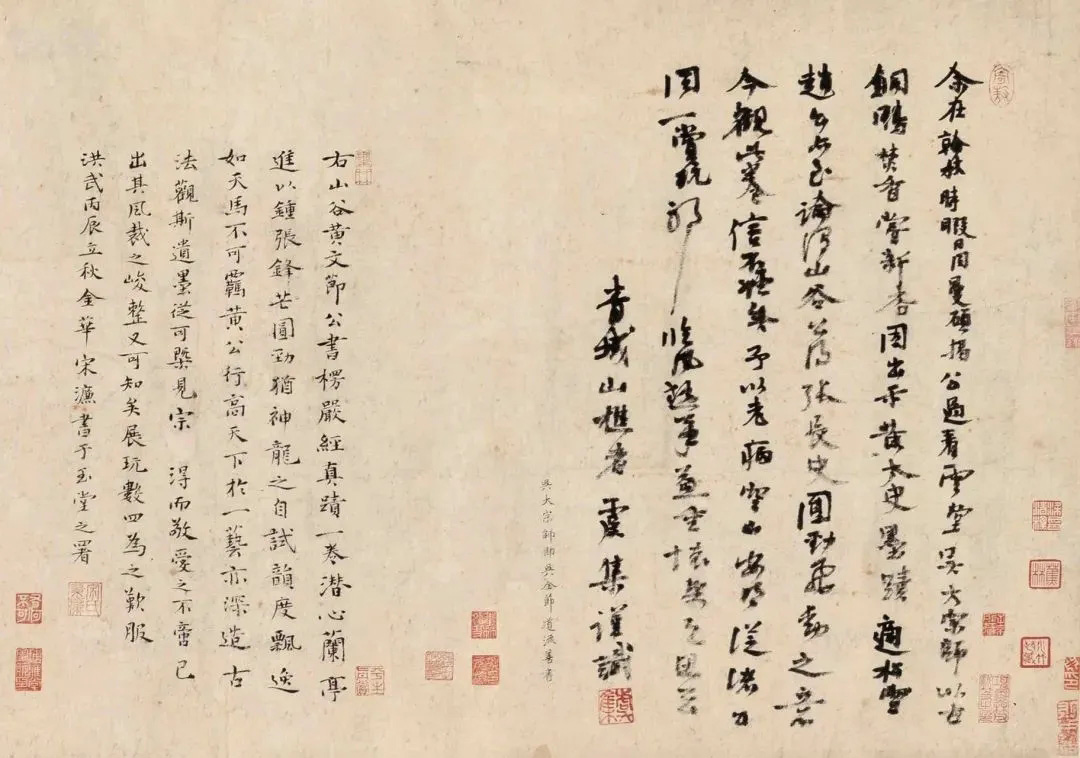 余在翰林時暇日同曼碩揭公過看雲堂吳大宗師以古
銅鴨焚香嘗新杏因出示黃太史墨蹟適松雪
趙公亦至論得山谷張長史圓勁飛動之意
今觀此卷信矣予以老病空山安得從諸公
同一賞玩耶臨風
青城山樵者虞集謹識
吳大宗師即吳全節道派善書
右山谷黃文節公書楞嚴經真蹟一卷潛心蘭亭
進以鍾張鋒芒圓勁猶神龍之自試韻度飄逸
如天馬不可羈黃公行高天下於一藝亦深造古
法觀斯遺墨從可槩見宗 得而敬愛之不啻己
出其風裁之峻整又可知矣展玩數四為之歎服
洪武丙辰立秋金華宋濂書于玉堂之署
虞集